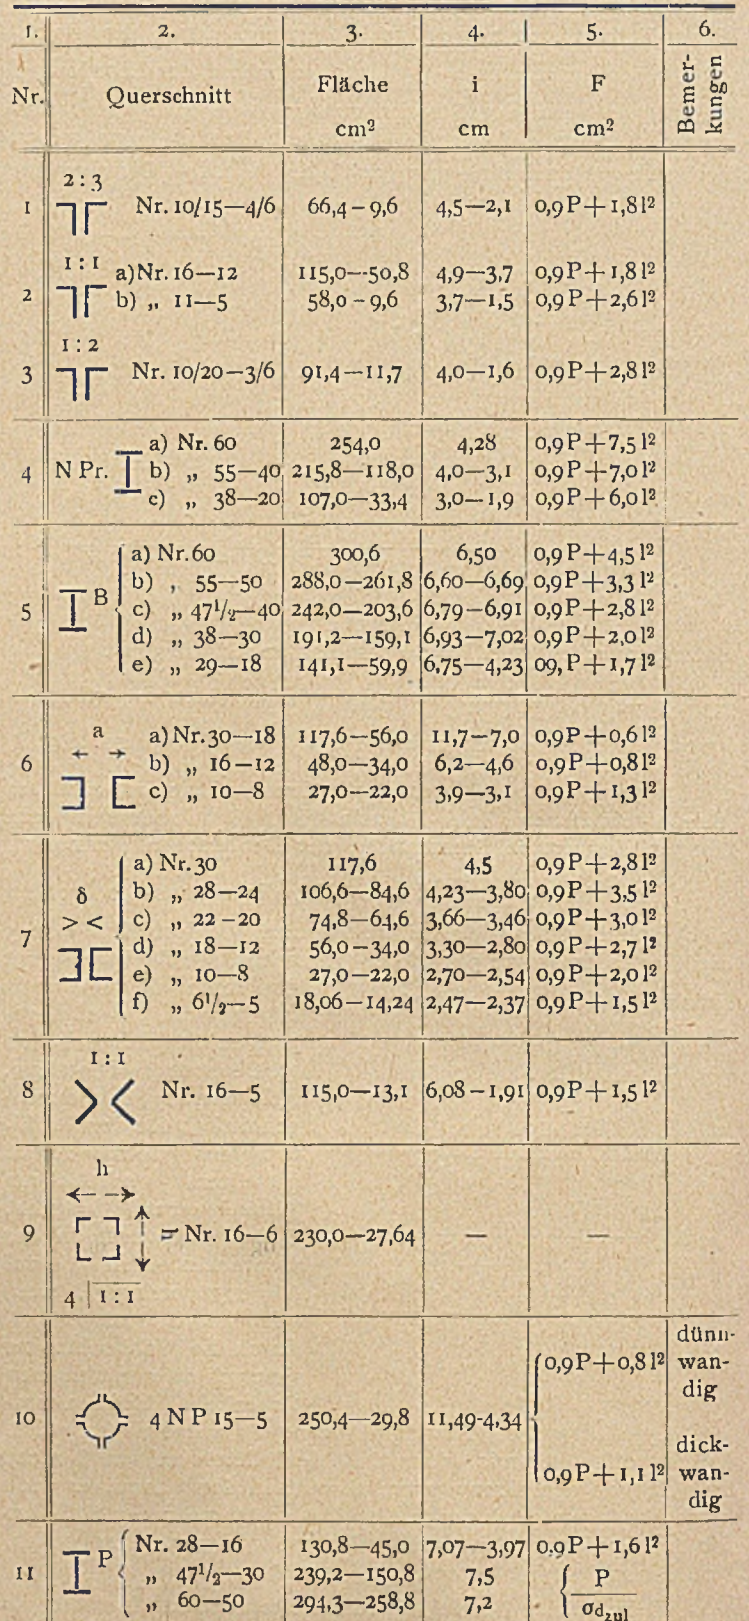 1. 2. 3. 4. 5. 6.
Nr. Querschnitt Fläche cm² i cm F cm² Bemer-
kungen
2:3
1 Nr. 10/15—4/6 66,4–9,6 4,5—2,1 0,9P+1,8l²
1:1 a)Nr. 16—12 115,0—50,8 4,9—3,7 0,9P+1,8l²
2 b) „ 11—5 58,0–9,6 3,7—1,5 0,9P+2,6l²
1:2
3 Nr. 10/20—3/6 91,4—11,7 4,0—1,6 0,9P+2,8l²
a) Nr. 60 254,0 4,28 0,9P+7,5l²
4 N Pr. b) „ 55—40 215,8—118,0 4,0—3,1 0,9P+7,0l²
c) „ 38—20 107,0—33,4 3,0—1,9 0,9P+6,0l²
a) Nr. 60 300,6 6,50 0,9P+4,5l²
b) , 55—50 288,0—261,8 6,60—6,69 0,9P+3,3l²
5 B c) „ 47½—40 242,0—203,6 6,79—6,91 0,9P+2,8l²
d) „ 38—30 191,2—159,1 6,93—7,02 0,9P+2,0l²
e) „ 29—18 141,1—59,9 6,75—4,23 09, P+1,7l²
a a) Nr. 30—18 117,6—56,0 11,7—7,0 0,9P+0,6l²
6 ← → b) „ 16—12 48,0—34,0 6,2—4,6 0,9P+0,8l²
c) „ 10—8 27,0—22,0 3,9—3,1 0,9P+1,3l²
a) Nr. 30 117,6 4,5 0,9P+2,8l²
δ b) „ 28—24 106,6—84,6 4,23—3,80 0,9P+3,5l²
> < c) „ 22–20 74,8—64,6 3,66—3,46 0,9P+3,0l²
7 d) „ 18—12 56,0–34,0 3,30—2,80 0,9P+2,7l²
e) „ 10—8 27,0—22,0 2,70—2,54 0,9P+2,0l²
f) „ 6½—5 18,06—14,24 2,47—2,37 0,9P+1,5l²
1:1
8 Nr. 16—5 115,0—13,1 6,08–1,91 0,9P+1,5l²
h
9 = Nr. 16—6 230,0—27,64 — —
4 1:1
0,9P+0,8l² dünn-
wan-
dig
10 4 N P 15—5 250,4—29,8 11,49-4,34
0,9P+1,1l² dick-
wan-
dig
Nr. 28—16 130,8—45,0 7,07—3,97 0,9P+1,6l²
11 P „ 47½—30 239,2—150,8 7,5 P
„ 60—50 294,3—258,8 7,2 σd zul